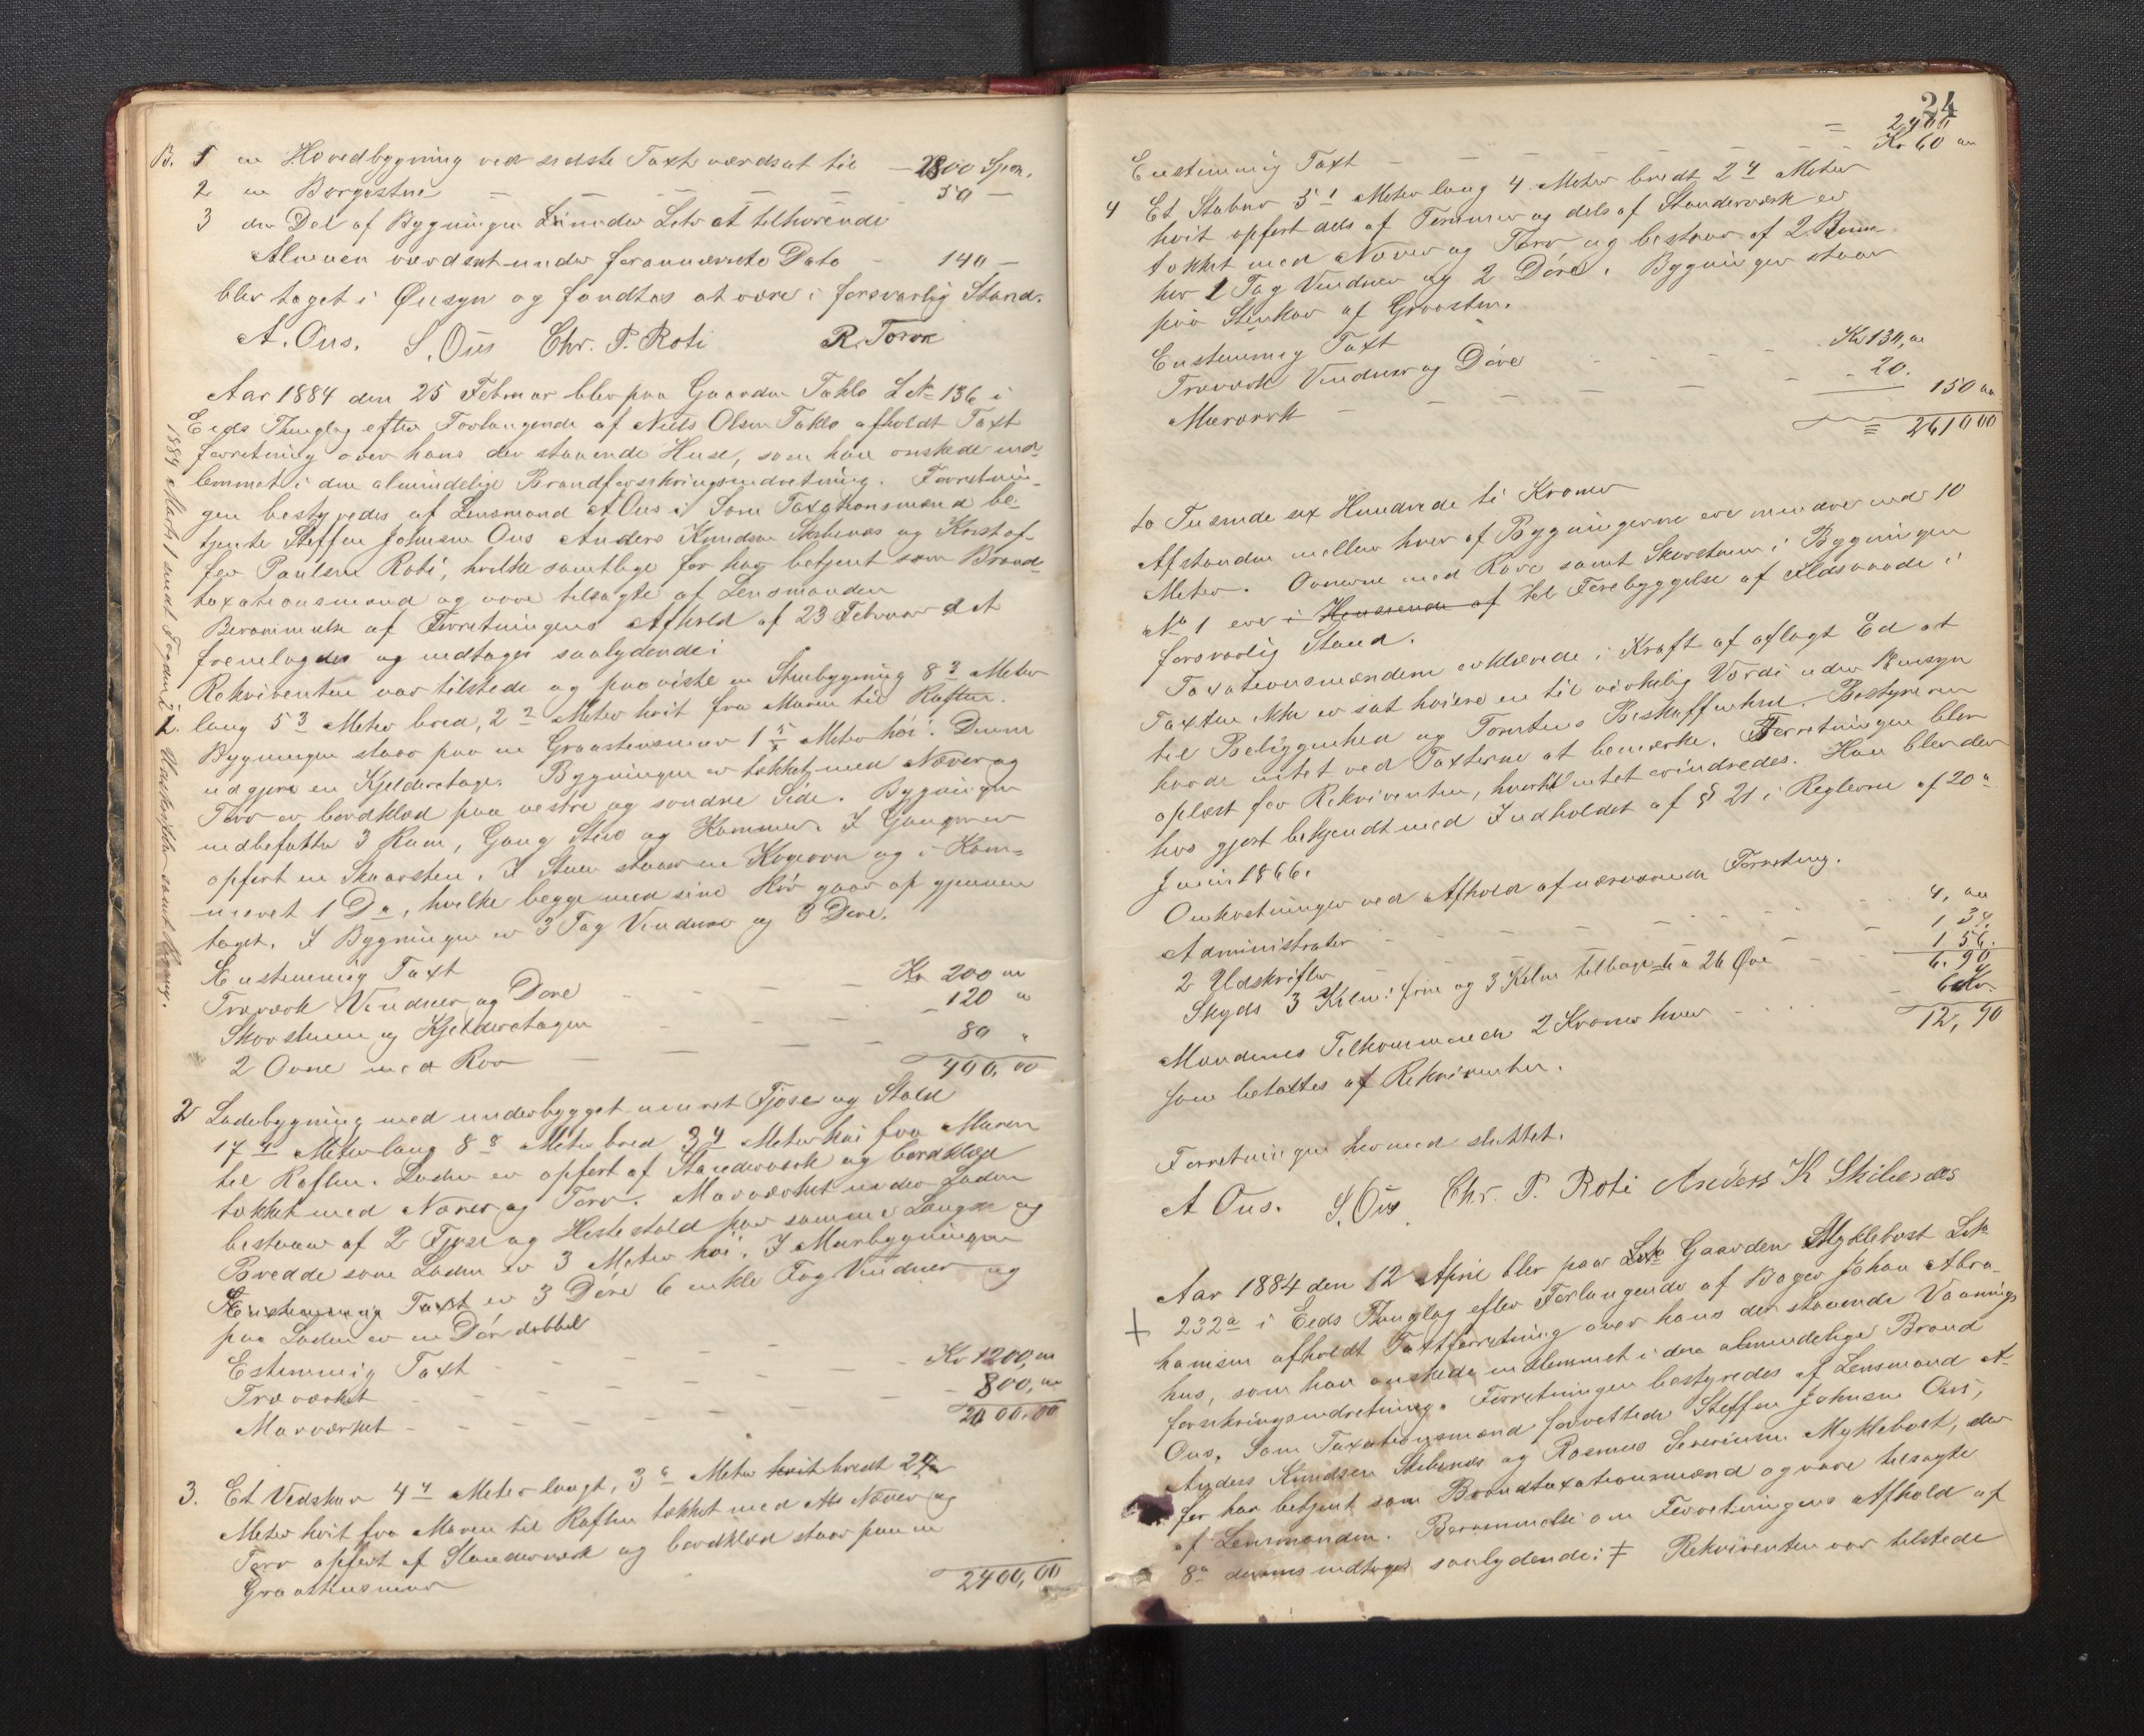 B. 1 en Hovedbygning ved sidste Taxt værdsat til — 2800 Spm.
2 en Borgestue — — — — — 50 —
3 den Del af Bygningen Litr A tilhørende
Almuen værdsat under forannævnte Dato - 140 —
blev taget i Øiesyn og fandtes at være i forsvarlig Stand.
A. Ous. S. Ous Chr. P. Roti R. Torvn
Aar 1884 den 25 Februar blev paa Gaarden Taklo LNo 136 i
Eids Thinglag efter Forlangende af Niels Olsen Taklo afholdt Taxt
forretning over hans der staaende Huse, som han ønskede ind-
lemmet i den almindelige Brandforsikringsindretning. Forretnin-
gen bestyredes af Lensmand A Ous. Som Taxationsmænd be-
tjente Steffen Johnsen Ous Anders Knudsen Skibenæs og Kristof-
fer Paulsen Roti, hvilke samtlige før har betjent som Brand-
taxationsmænd og vare tilsagte af Lensmanden
Berammelse af Forretningens Afhold af 23 Februar d A
fremlagdes og indtages saalydende:
Rekvirenten var tilstede og paaviste en Stuebygning 8 3 Meter
1. lang 5 3 Meter bred, 2 2 Meter høit fra Muren til Raften.
Bygningen staar paa en Graastensmur 1 5 Meter høi. Denne
udgjøre en Kjelderetage. Bygningen er tækket med Næver og
Torv er bordklæd paa vestre og søndre Side. Bygningen
indbefatter 3 Rum, Gang Stue og Kammer. I Gangen er
opført en Skorsten. I Stuen staar en Kogeovn og i Kam-
meret 1 Do, hvilke begge med sine Rør gaar op gjennem
taget. I Bygningen er 3 Fag Vinduer og 3 Døre.
Enstemmig Taxt
Træværk Vinduer og Døre — — — Kr 200 "
Skorstenen og Kjelderetagen — — — 120 "
2 Ovne med Rør — — — 80 "
400,00
2 Ladebygning med underbygget muret Fjøse og Stald
17 4 Meter lang 8 8 Meter bred 3 4 Meter høi fra Muren
til Raften. Laden er opført af Standerværk og bordklæd
tækket med Næver og Torv. Murværket under Laden
bestaar af 2 Fjøse og Hestestald paa samme Længde og
Bredde som Laden er 3 Meter høi. I Murbygningen
Enstemmig Taxt er 3 Døre 6 enkle Fag Vinduer og
paa Laden er en Dør dobbel
Estemmig Taxt
Træværket — — — Kr 1200,"
Murværket — — — 800,"
2000,00
3. Et Vedskur 4 4 Meter langt, 3 Meter høit bredt 2
Meter høit fra Muren til Raften tækket med Næver og
Torv opført af Standerværk og bordklæd staar paa en
Graastensmur
2400,00
1884 Marts 1 sendt Fogden 2 Udskrifter samt
24
= 2400
Enstemmig Taxt — — — Kr 60 "
4 Et Stabur 5 1 Meter lang 4 Meter bredt 2 4 Meter
høit opført dels af Tømmer og dels af Standerværk er
tækket med Næver og Torv og bestaar af 2 Rum
har 1 Fag Vinduer og 2 Døre. Bygningen staar
paa Stenkar af Graasten.
Enstemmig Taxt
Træværk Vinduer og Døre — — Kr 130,"
Murværk — — — 20.
150 "
= 2610 00
to Tusinde sex Hundrede ti Kroner
Afstanden mellem hver af Bygningerne ere mindre end 10
Meter. Ovnerne med Rører samt Skorstenen i Bygningen
No 1 ere i Henseende af til Forebyggelse af Ildsvaade i
forsvarlig Stand.
Taxationsmændene erklærede i Kraft af aflagt Ed at
Taxten ikke er sat høiere en til virkelig Værdi uden Hensyn
til Beliggenhed og Tomtens Beskaffenhed. Bestyreren
havde intet ved Taxterne at bemærke. Forretningen blev
oplæst for Rekvirenten, hvortil intet erindredes. Han blev der
hos gjort bekjendt med Indholdet af § 21 i Reglerne af 20de
Juni 1866.
Omkostninger ved Afhold af nærværende Forretning.
Administrator — — — 4, "
2 Udskrifter — — — 1 34
Skyds 3 Kilm: frem og 3 Kilm tilbage 6 a 26 Øre — 1 56.
6. 90
Mændenes Tilkommende 2 Kroner hver — 6 Kr.
12,90
som betaltes af Rekvirenten.
Forretningen hermed sluttet.
A Ous. S. Ous Chr. P. Roti Anders K Skibenæs
Aar 1884 den 12 April blev paa Gaarden Myklebost LNo
232a i Eids Thinglag efter Forlangende af Bager Johan Abra-
hamsen afholdt Taxtforretning over hans der staaende Vaanings
hus, som han ønskede indlemmet i den almindelige Brand
forsikringsindretning. Forretningen bestyredes af Lensmand A
Ous. Som Taxationsmænd forrettede Steffen Johnsen Ous,
Anders Knudsen Skibenæs og Rasmus Severinsen Myklebost, der
før har betjent som Brandtaxationsmænd og vare tilsagte
af Lensmanden. Berammelse om Forretningens Afhold af
8de dennes indtages saalydende: ‡ Rekvirenten var tilstede